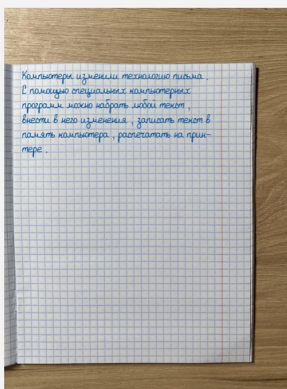 Компьютеры изменили технологию письма.
С помощью специальных компьютерных
программ можно набрать любой текст,
внести в него изменения, записать текст в
память компьютера, распечатать на прин-
тере.